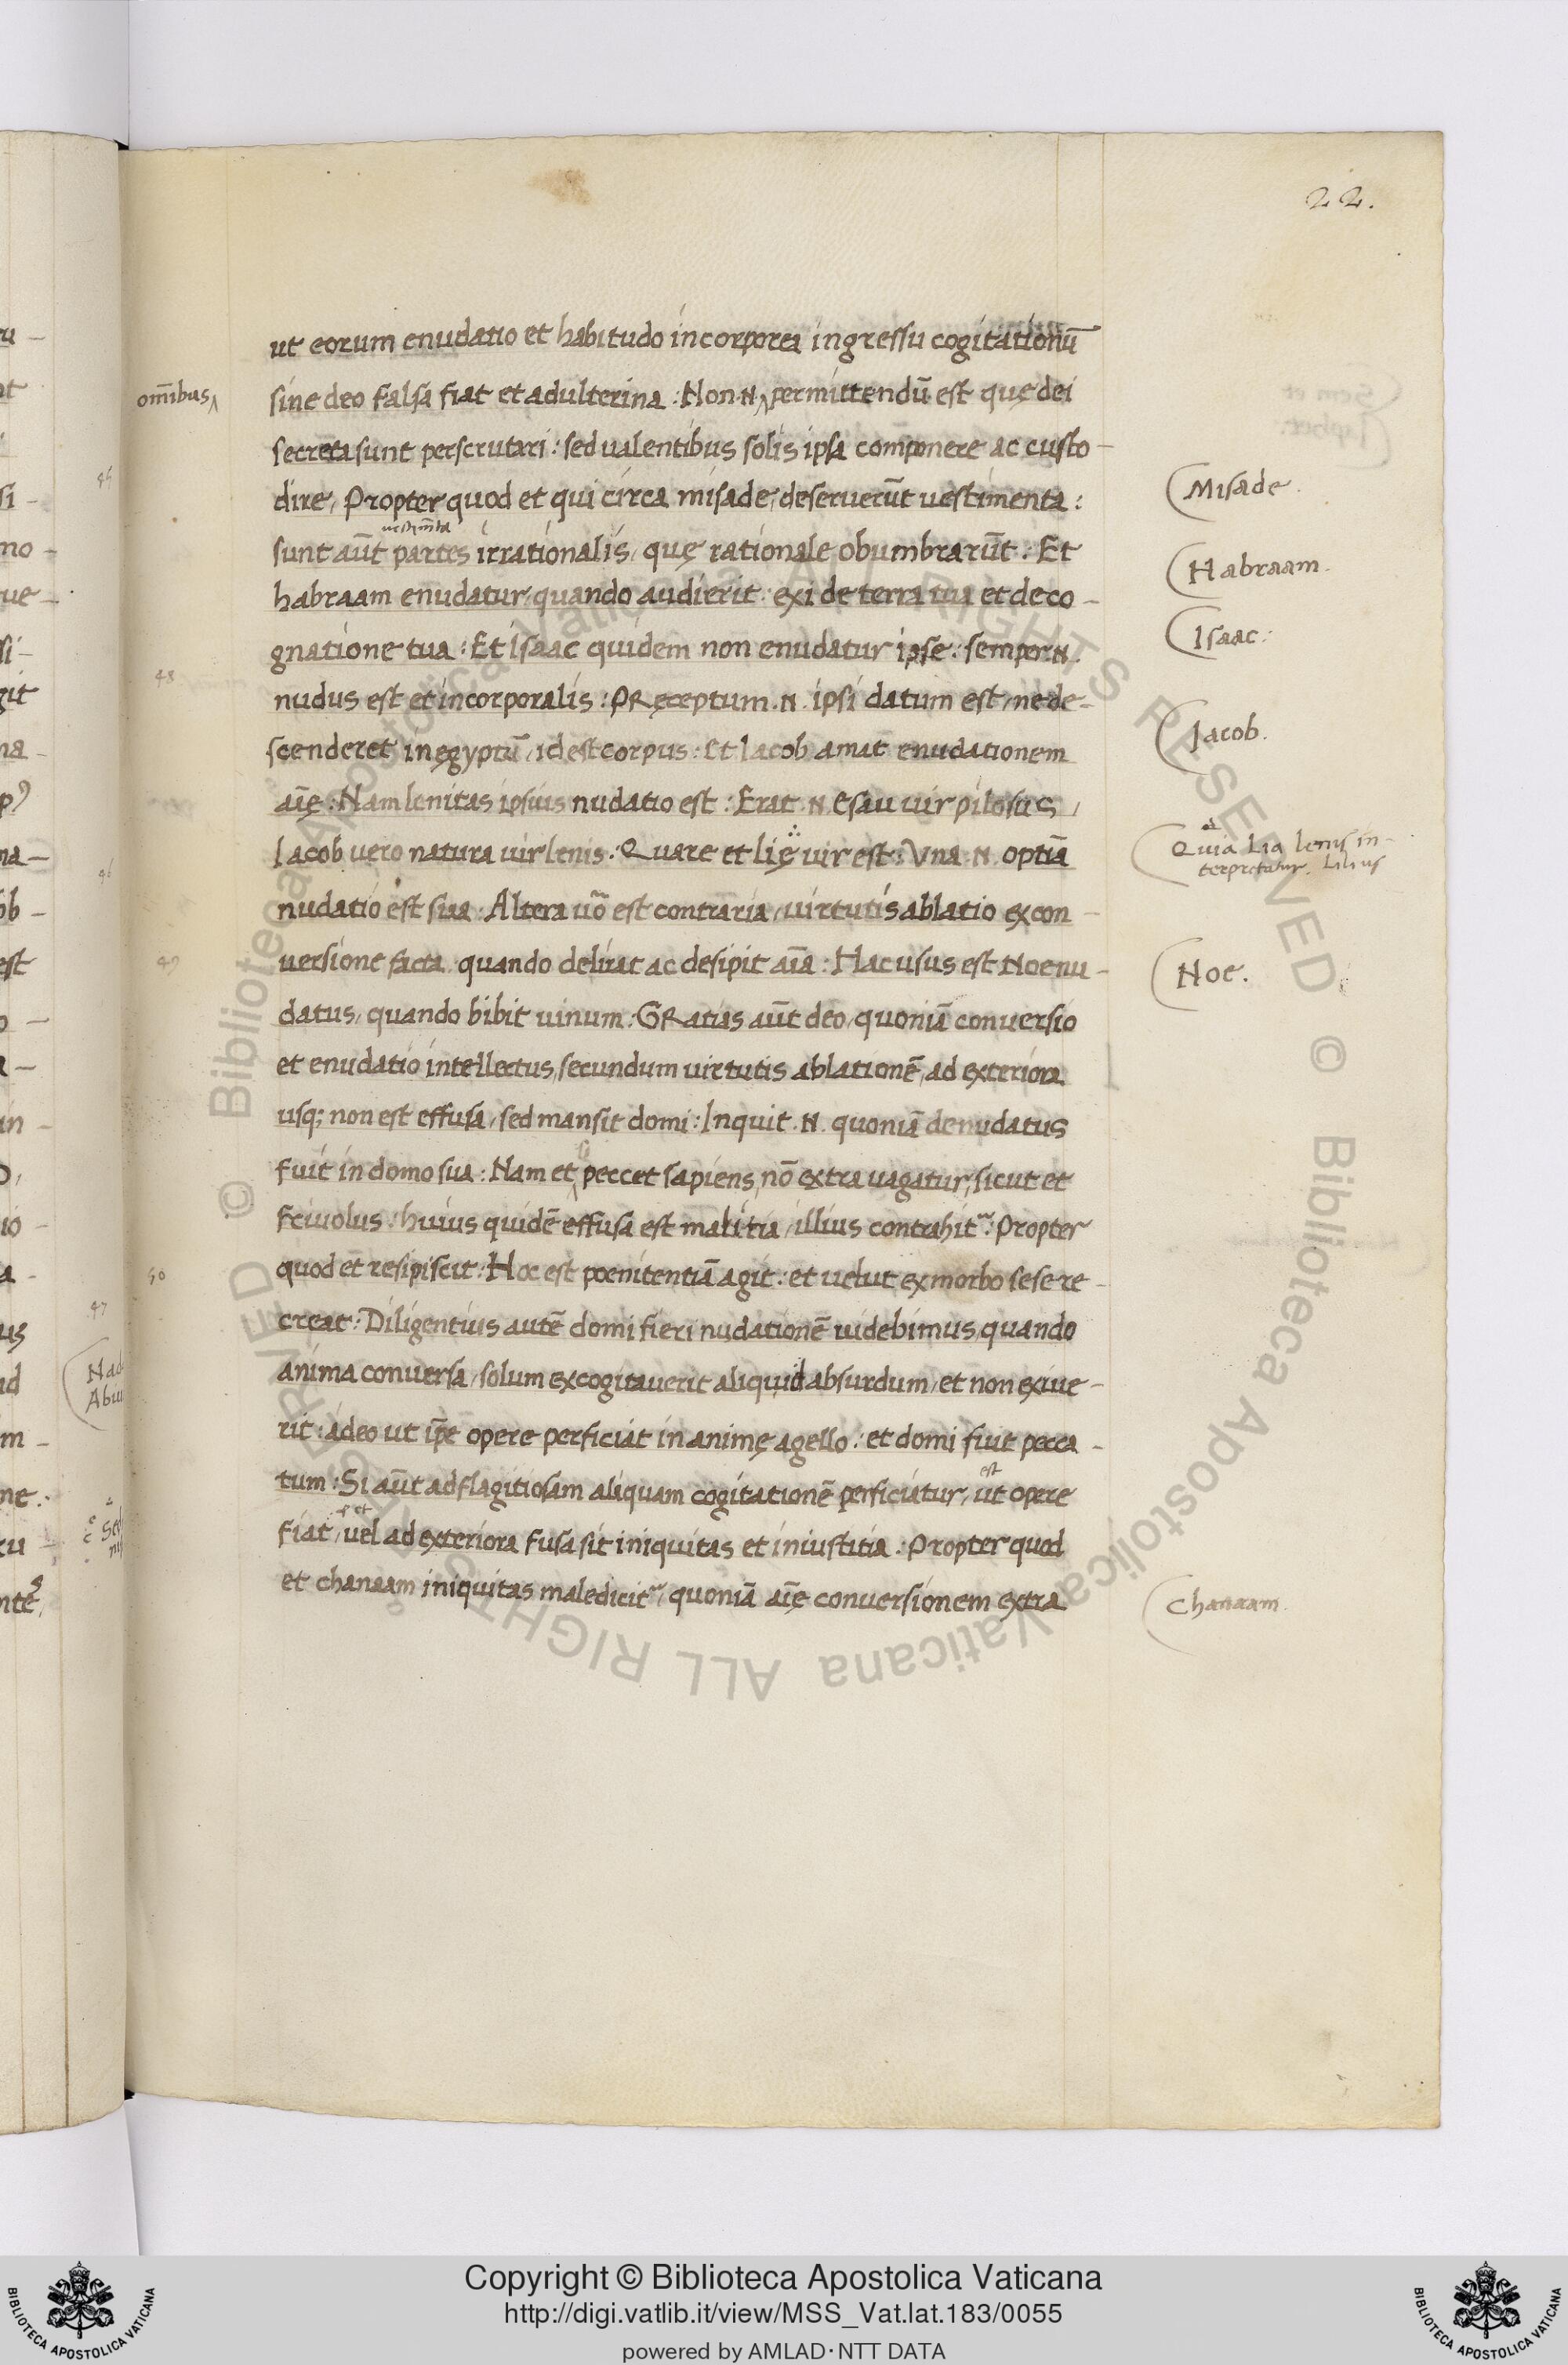 22.
ut eorum enudatio et habitudo incorporea ingressu cogitationū
om̄ibus
sine deo falsa fiat et adulterina : Non .N. permittendū est quę dei
secreta sunt perscrutari : sed ualentibus solis ipsa componere ac custo-
dire, Propter quod et qui circa misade, deseruerūt uestimenta :
Misade.
uestim̄ta
sunt aūt partes irrationalis, quę rationale obumbrarūt : Et
Habraam.
habraam enudatur, quando audierit : exi de terra tua et de co-
gnatione tua : Et Isaac quidem non enudatur ipse : semper .N.
Isaac :
nudus est et incorporalis : PRęceptum .N. ipsi datum est, ne de-
scenderet in ęgyptū, id est corpus : Et Iacob amat enudationem
Jacob.
aīę : Nam lenitas ipsius nudatio est : Erat .N. Esau uir pilosus,
Iacob uero natura uir lenis : Quare et lię uir est : Vna .N. optīa
Quia Lia lenis in-
terpretatur. Lilius
nudatio est sua : Altera uō est contraria, uirtutis ablatio ex con-
uersione facta quando delirat ac desipit aīa : Hac usus est Noe nu-
Noe.
datus, quando bibit uinum : GRatias aūt deo, quoniā conuersio
et enudatio intellectus, secundum uirtutis ablationē, ad exteriora
usq; non est effusa, sed mansit domi : Inquit .N. quoniā denudatus
fuit in domo sua : Nam et si peccet sapiens, nō extra uagatur, sicut et
friuolus : huius quidē effusa est malitia, illius contrahit᷑ : Propter
quod et resipiscit : Hoc est poenitentiā agit : et uelut ex morbo sese re-
creat : Diligentius autē domi fieri nudationē uidebimus, quando
anima conuersa, solum excogitauerit aliquid absurdum, et non exiue-
rit : adeo ut ip̄e opere perficiat in animę agello : et domi fuit pecca-
tum : Si aūt ad flagitiosam aliquam cogitationē perficiatur, ut opere
est
fiat, uel ad exteriora fusa sit iniquitas et iniustitia : Propter quod
et chanaam iniquitas maledicit᷑, quoniā aīę conuersionem extra
Chanaam.
48
49
50
46
47
Copyright © Biblioteca Apostolica Vaticana
http://digi.vatlib.it/view/MSS_Vat.lat.183/0055
powered by AMLAD·NTT DATA
BIBLIOTECA APOSTOLICA VATICANA
BIBLIOTECA APOSTOLICA VATICANA
© Biblioteca Apostolica Vaticana ALL RIGHTS RESERVED © Biblioteca Apostolica Vaticana ALL RIGHTS RESERVED